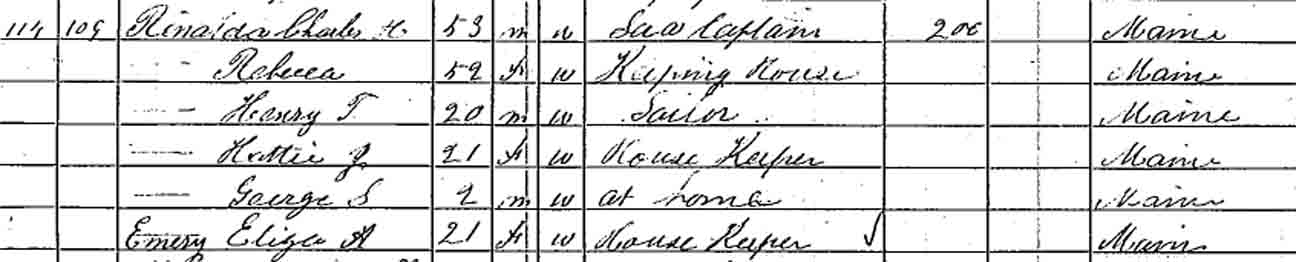 114 109 Rinalda Charles H 53 m w Sea Captain 200 Maine
— Rebecca 52 F w Keeping House Maine
— Henry T 20 m w Sailor Maine
— Hattie J 21 F w House Keeper Maine
— George S 2 m w at home Maine
Emery Eliza A 21 F w House Keeper ✓ Maine